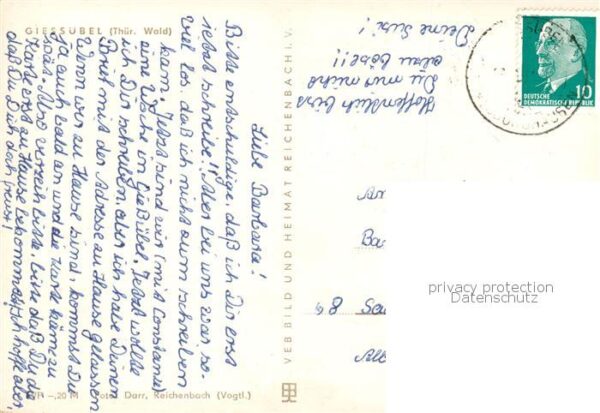 GIESSÜBEL (Thür. Wald)
Liebe Barbara!
Bitte entschuldige, daß ich Dir erst
jetzt schreibe!! Aber bei uns war so-
viel los, daß ich nicht zum schreiben
kam. Jetzt sind wir (mit Constanze)
eine Woche in Gießübel. Jetzt wollte
ich Dir schreiben, aber ich habe Deinen
Brief mit der Adresse zu Hause gelassen
Wenn wir zu Hause sind, kommst Du
ja auch bald an und die Karte käme zu
spät. Also verzeih bitte, bitte daß Du die
Karte erst zu Hause bekommst. Ich hoffe aber,
daß Du Dich doch freust!
Hoffentlich bist
Du mir nicht
allzu böse!!
Deine Susi!
VEB BILD UND HEIMAT REICHENBACH I. V.
-,20 M Foto: Darr, Reichenbach (Vogtl.)
DEUTSCHE
DEMOKRATISCHE REPUBLIK
10
privacy protection
Datenschutz